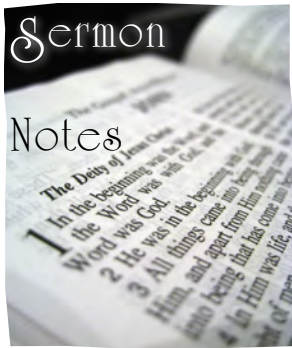 Sermon
Notes
The Deity of Jesus Christ
1 In the beginning was the
the Word was with God, and the
Word was God.
2 He was in the beginning with God
3 All things came into being
Him, and apart from Him nothing
into being that has come
4 In Him was life, and
of men